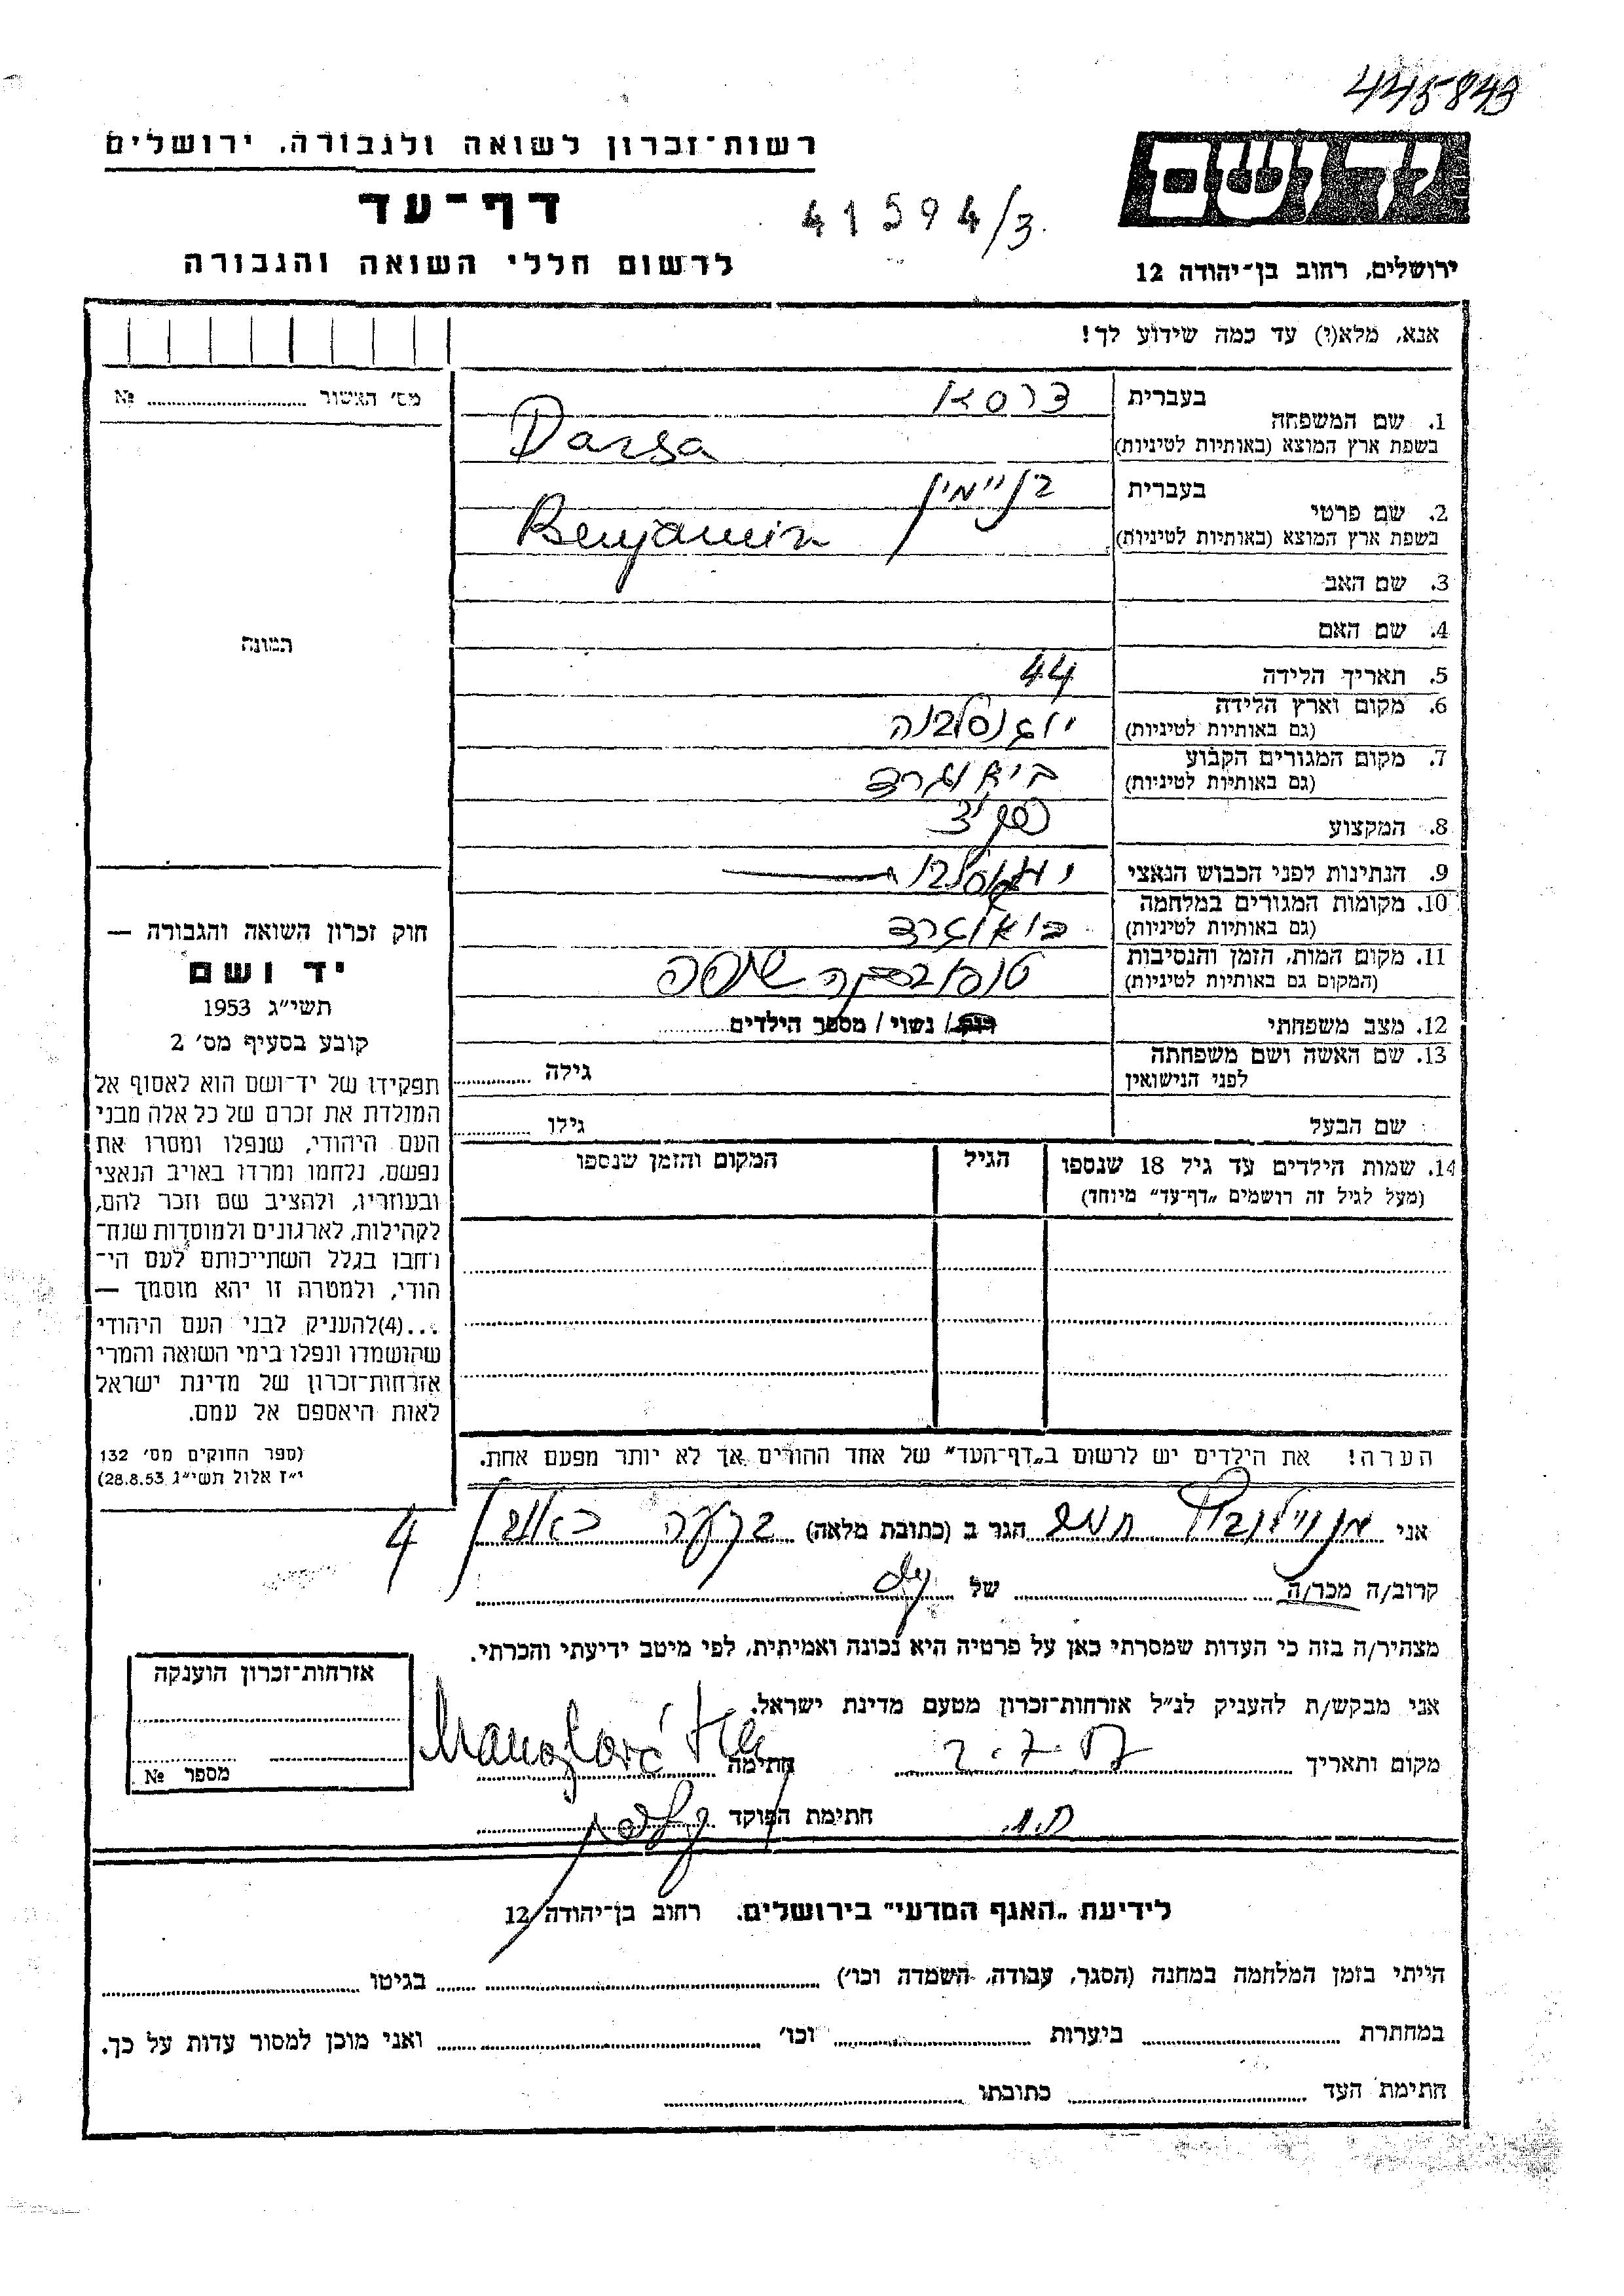 445843
רשות־זכרון לשואה ולגבורה. ירושלים
ידושם
דף־עד
41594/3.
לרשום חללי השואה והגבורה
ירושלים, רחוב בן־יהודה 12
אנא, מלא(י) עד כמה שידוע לך!
מס׳ האשור ........ №
1. שם המשפחה
בעברית
דרסא
בשפת ארץ המוצא (באותיות לטיניות)
Darsa
2. שם פרטי
בעברית
בנימין
בשפת ארץ המוצא (באותיות לטיניות)
Benjamin
3. שם האב
4. שם האם
תמונה
5. תאריך הלידה
44
6. מקום וארץ הלידה
(גם באותיות לטיניות)
יוגוסלביה
7. מקום המגורים הקבוע
(גם באותיות לטיניות)
8. המקצוע
פקיד
9. הנתינות לפני הכבוש הנאצי
10. מקומות המגורים במלחמה
(גם באותיות לטיניות)
11. מקום המות, הזמן והנסיבות
(המקום גם באותיות לטיניות)
12. מצב משפחתי
רוק / נשוי / מספר הילדים
13. שם האשה ושם משפחתה
לפני הנישואין
גילה
שם הבעל
גילו
14. שמות הילדים עד גיל 18 שנספו
(מעל לגיל זה רושמים „דף־עד" מיוחד)
הגיל
המקום והזמן שנספו
חוק זכרון השואה והגבורה —
יד ושם
תשי״ג 1953
קובע בסעיף מס׳ 2
תפקידו של יד־ושם הוא לאסוף אל
המולדת את זכרם של כל אלה מבני
העם היהודי, שנפלו ומסרו את
נפשם, נלחמו ומרדו באויב הנאצי
ובעוזריו, ולהציב שם וזכר להם,
לקהילות, לארגונים ולמוסדות שנח־
רחבו בגלל השתייכותם לעם הי־
הודי, ולמטרה זו יהא מוסמך —
...(4)להעניק לבני העם היהודי
שהושמדו ונפלו בימי השואה והמרי
אזרחות־זכרון של מדינת ישראל
לאות היאספם אל עמם.
(ספר החוקים מס׳ 132
י״ז אלול תשי״ג 28.8.53)
הערה! את הילדים יש לרשום ב„דף־העד" של אחד ההורים אך לא יותר מפעם אחת.
אני
הגר ב (כתובת מלאה)
4
קרוב/ה מכר/ה ........ של
מצהיר/ה בזה כי העדות שמסרתי כאן על פרטיה היא נכונה ואמיתית, לפי מיטב ידיעתי והכרתי.
אני מבקש/ת להעניק לנ״ל אזרחות־זכרון מטעם מדינת ישראל.
אזרחות־זכרון הוענקה
מספר №
מקום ותאריך
2.7.57
חתימה
חתימת הפוקד
לידיעת „האגף המדעי" בירושלים. רחוב בן־יהודה 12
הייתי בזמן המלחמה במחנה (הסגר, עבודה, השמדה וכו׳) ........ בגיטו ........
במחתרת ........ ביערות ........ וכו׳ ........ ואני מוכן למסור עדות על כך.
חתימת העד ........ כתובתו ........